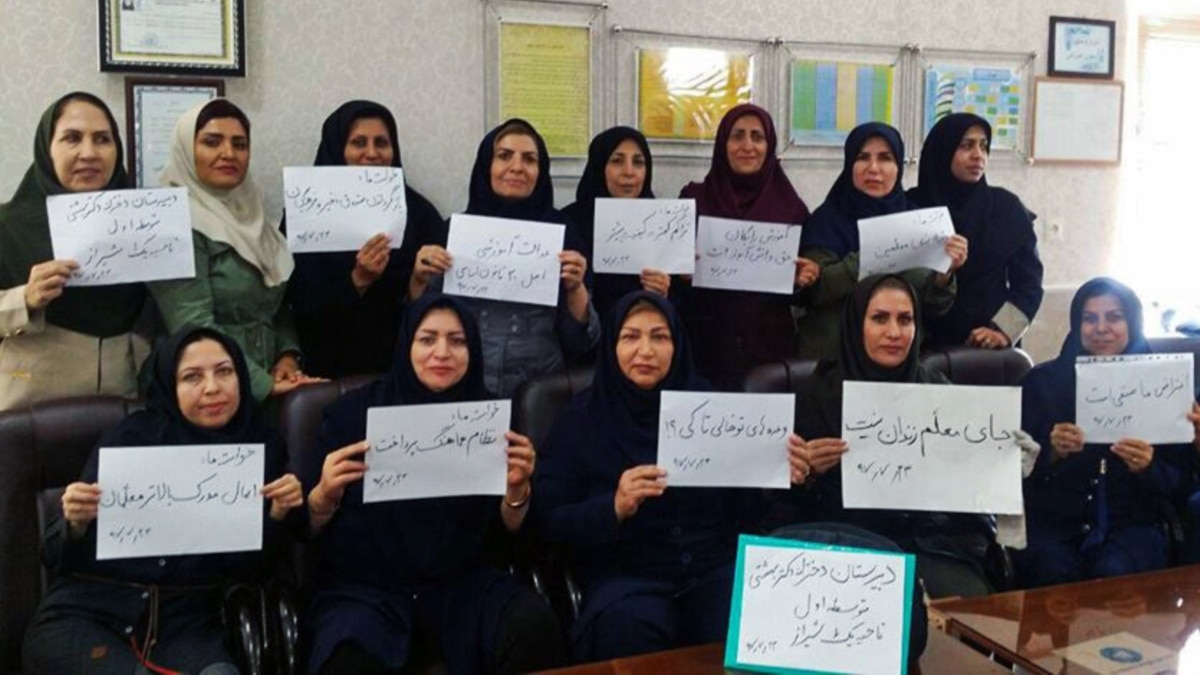 دبیرستان دخترانه دکتر بهشتی
متوسطه اول
ناحیه یک شیراز
۹۷/۷/۲۳
خواست ما:
بازگرداندن صندوق ذخیره فرهنگیان
۹۷/۷/۲۳
عدالت آموزشی
اصل ۳۰ قانون اساسی
۹۷/۷/۲۳
خواست ما:
تراکم کمتر = کیفیت بیشتر
۹۷/۷/۲۳
آموزش رایگان
حق دانش آموز است
۹۷/۷/۲۳
معلمین
خواست ما:
اعمال مدرک بالاتر معلمان
۹۷/۷/۲۳
خواسته ما:
نظام هماهنگ پرداخت
۹۷/۷/۲۳
وعده های توخالی تا کی؟!
۹۷/۷/۲۳
جای معلم زندان نیست
۹۷/۷/۲۳
اعتراض ما صنفی است
۹۷/۷/۲۳
دبیرستان دخترانه دکتر بهشتی
متوسطه اول
ناحیه یک شیراز
۹۷/۷/۲۳